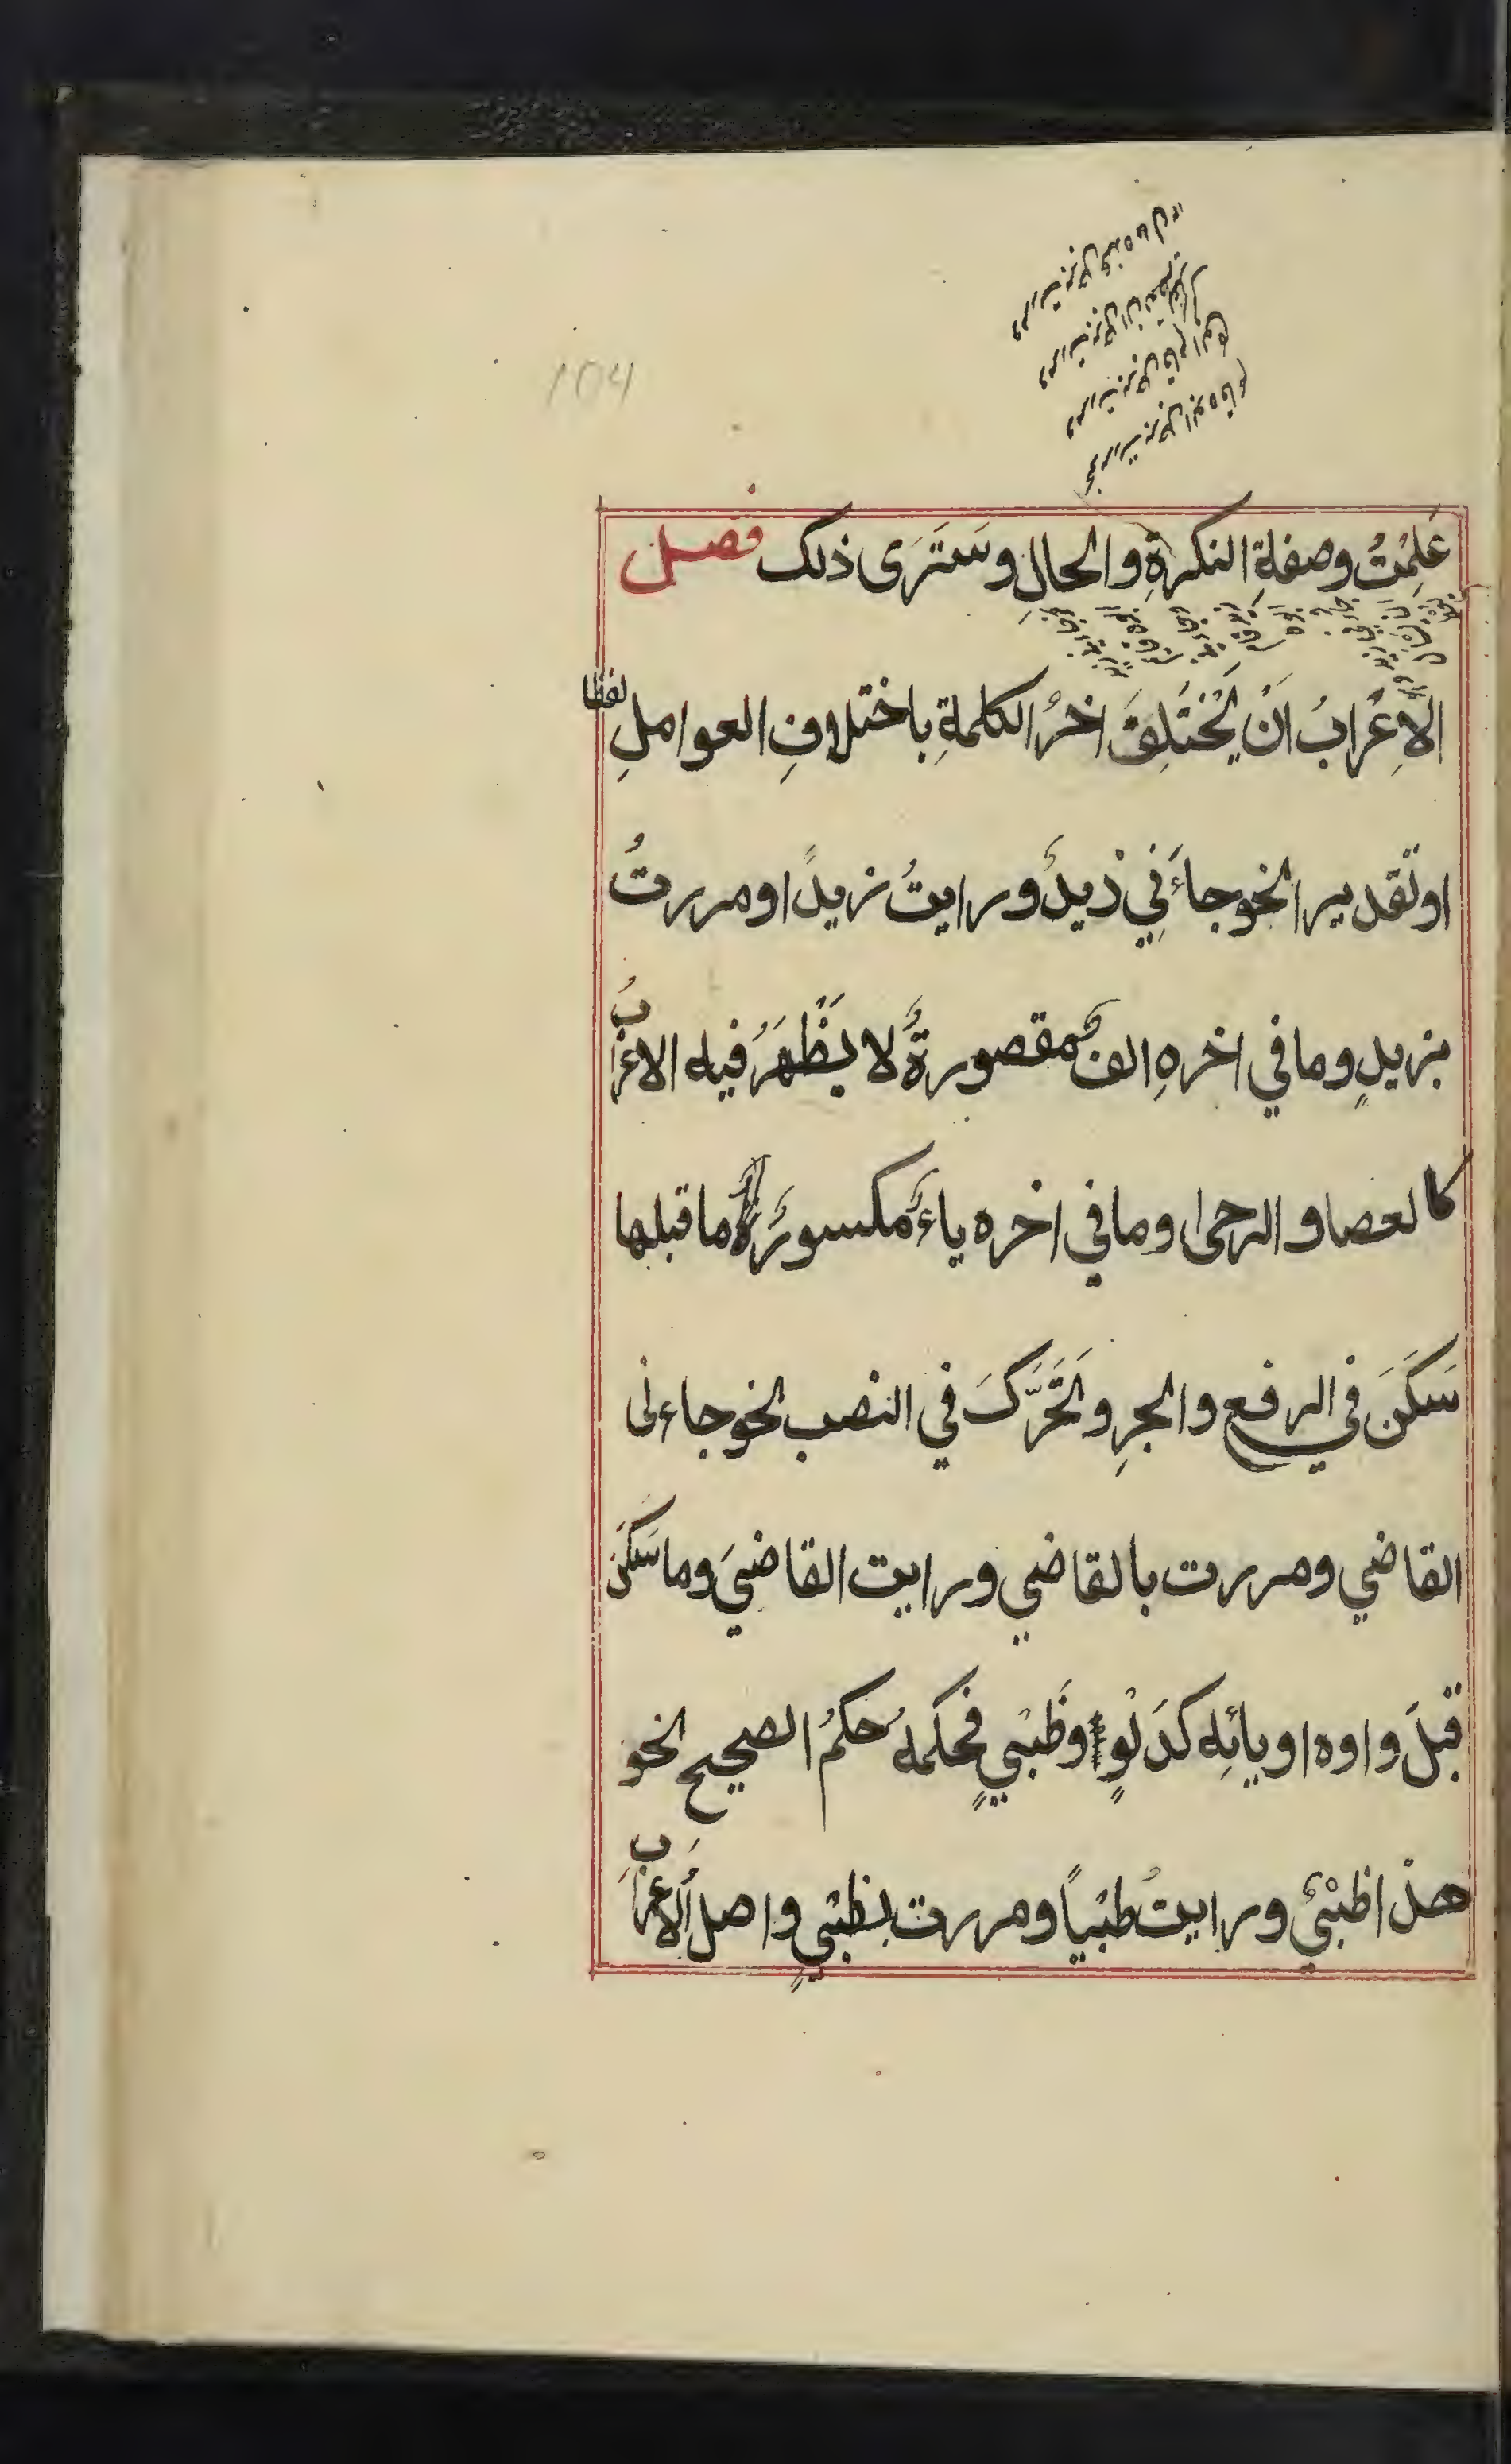 104
ومررت برجل عنده مال
ومررت برجل ان
ومررت برجل قام ابوه
نحو مررت برجل ابوه قائم
عَلِمْتُ وصفةِ النكرةِ والحالِ وسَتَرَى ذلك فصل
الاِعْرابُ اَنْ يَخْتَلِفَ اخرُ الكلمةِ باختلافِ العواملِ لفظا
او تقديرا نحو جاءَنِي زيدٌ ورايتُ زيداً ومررتُ
بزيدٍ وما في اخرهِ الفٌ مقصورةٌ لا يظْهَرُ فيه الاعرابُ
كالعصا والرحى وما في اخره ياءٌ مكسورَةٌ ما قبلها
سَكَنَ في الرفع والجرِ وتَحَرَّكَ في النصب نحو جاءنى
القاضي ومررت بالقاضي ورايت القاضيَ وما سَكَنَ
قبْلَ واوه او يائِه كدَلْوٍ وظَبْيٍ فحكمهُ حكمُ الصحيح نحو
هذا ظبْيٌ ورايتُ ظبْياً ومررت بظبْيٍ واصلُ الاعرابِ